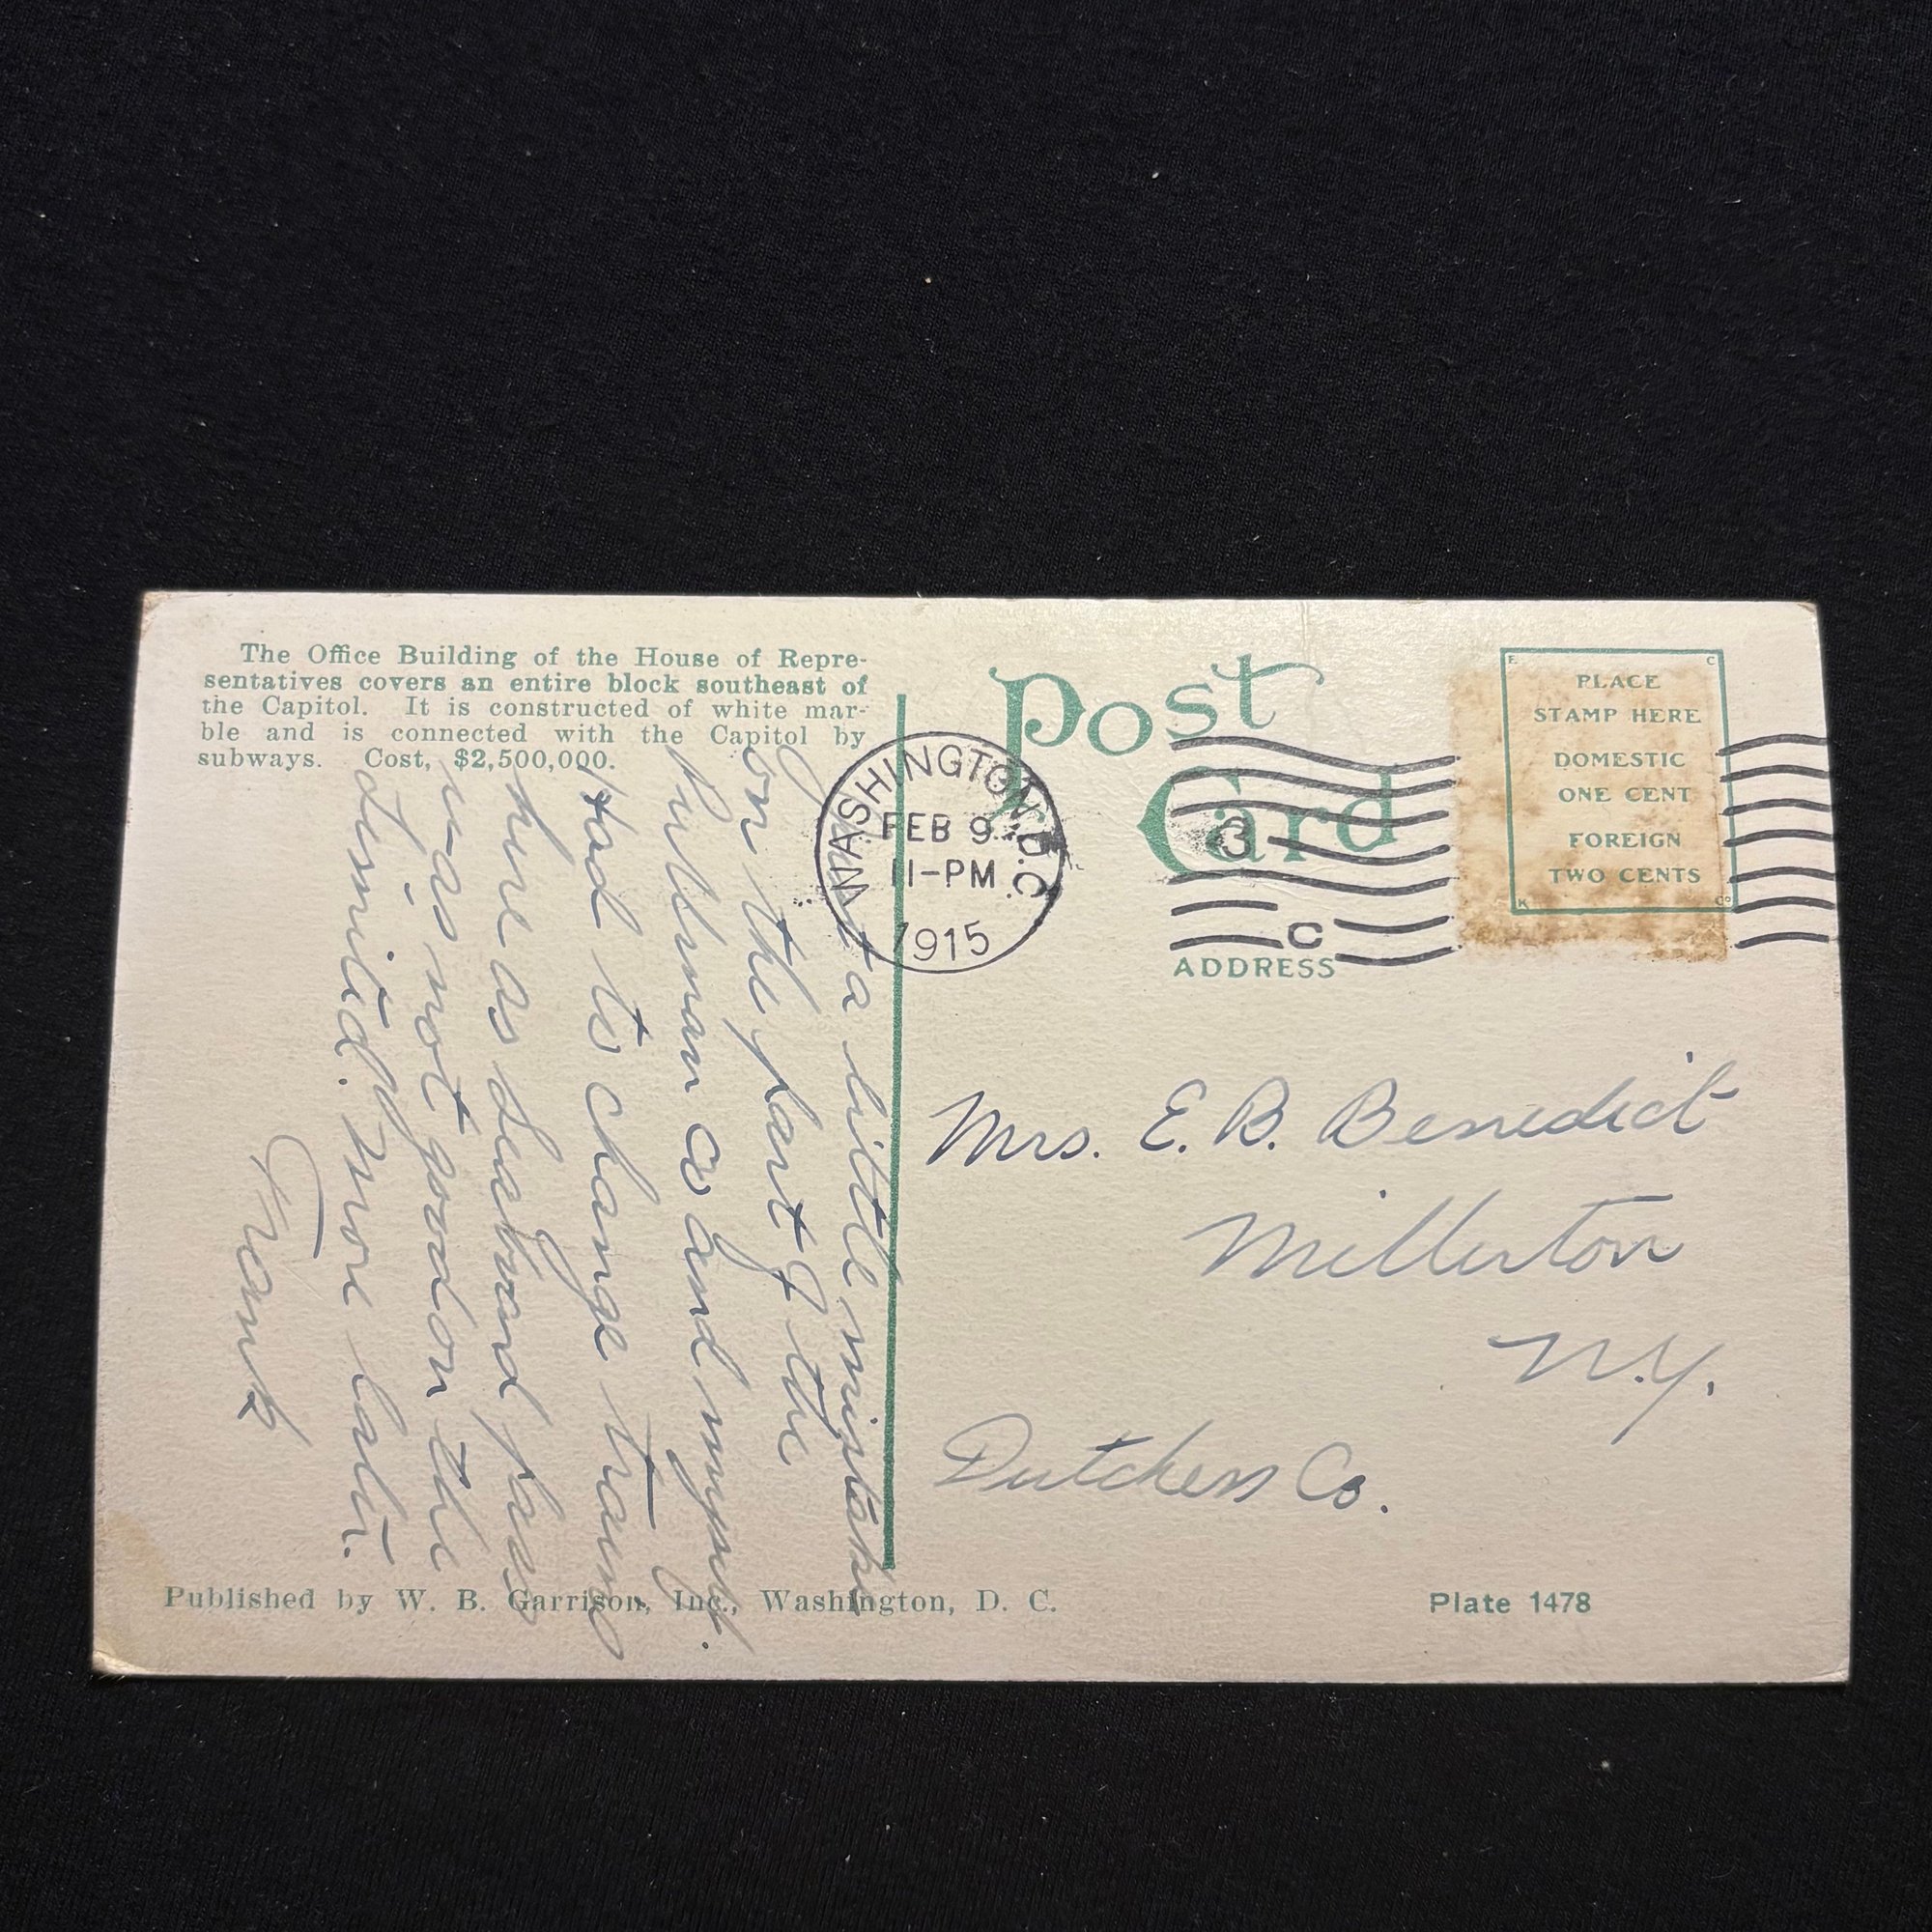 The Office Building of the House of Repre-
sentatives covers an entire block southeast of
the Capitol. It is constructed of white mar-
ble and is connected with the Capitol by
subways. Cost, $2,500,000.
Just a little mistake
on the part of the
pullman co and myself.
Had to change trains
here as Seaboard pass
was not good on the
limited. More later.
Frank
Post
Card
WASHINGTON, D.C.
FEB 9
11-PM
1915
3
C
ADDRESS
E C
PLACE
STAMP HERE
DOMESTIC
ONE CENT
FOREIGN
TWO CENTS
K Co
Mrs. E. B. Benedict
Millerton
N.Y.
Dutchess Co.
Published by W. B. Garrison, Inc., Washington, D. C.
Plate 1478